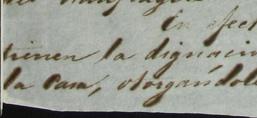 En efect
tienen la dignacion
la casa, otorgandole